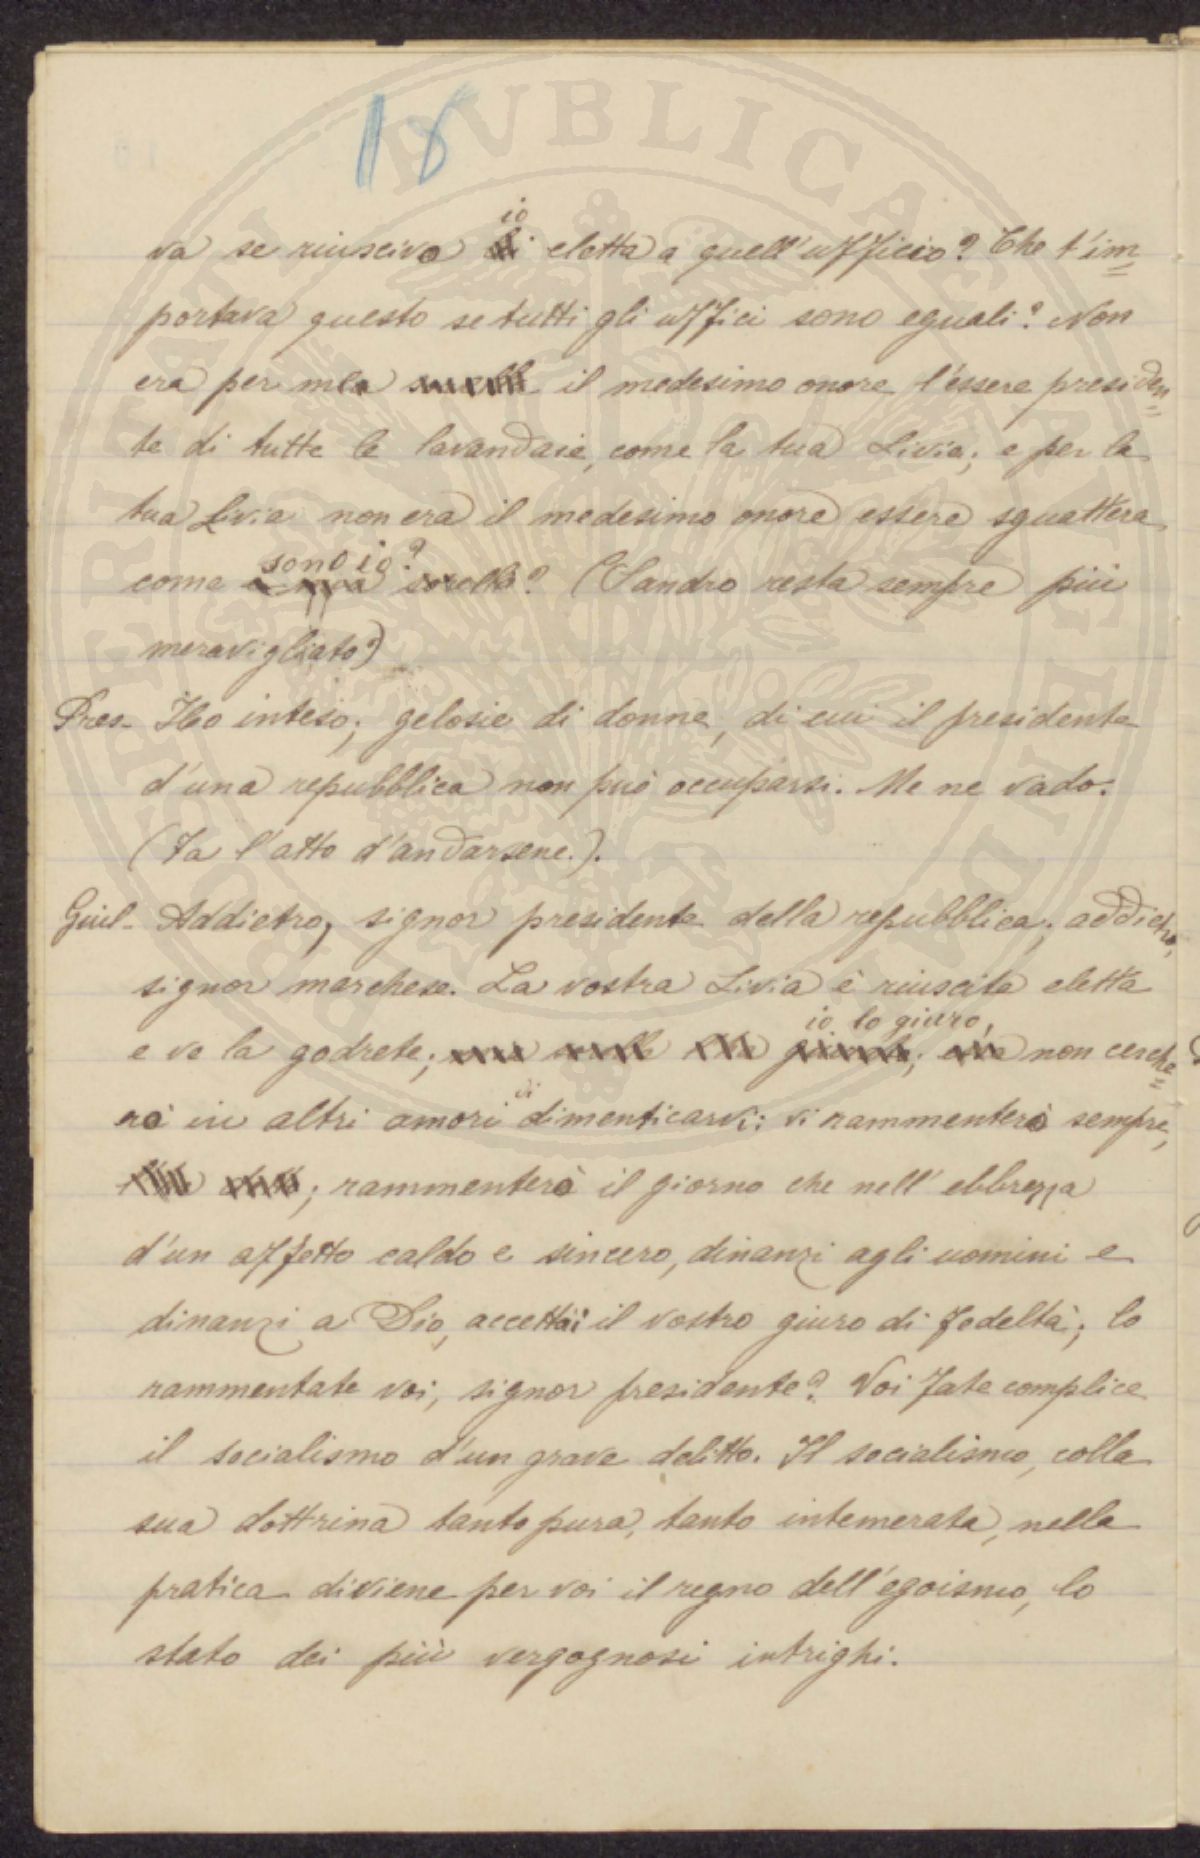 18
va se riuscivo io eletta a quell'ufficio? Che t'im=
portava questo se tutti gli uffici sono eguali? Non
era per me il medesimo onore l'essere presiden=
te di tutte le lavandaie, come la tua Livia; e per la
tua Livia non era il medesimo onore essere sguattera
come sono io? (Sandro resta sempre più
meravigliato)
Pres- Ho inteso; gelosie di donne, di cui il presidente
d'una repubblica non può occuparsi. Me ne vado.
(Fa l'atto d'andarsene.).
Giul- Addietro, signor presidente della repubblica; addietro,
signor marchese. La vostra Livia è riuscita eletta
e ve la godrete; io lo giuro, non cerche=
rò in altri amori di dimenticarvi: vi rammenterò sempre,
; rammenterò il giorno che nell'ebbrezza
d'un affetto caldo e sincero, dinanzi agli uomini e
dinanzi a Dio, accettai il vostro giuro di fedeltà; lo
rammentate voi, signor presidente? Voi fate complice
il socialismo d'un grave delitto. Il socialismo, colla
sua dottrina tanto pura, tanto intemerata, nella
pratica diviene per voi il regno dell'egoismo, lo
stato dei più vergognosi intrighi.